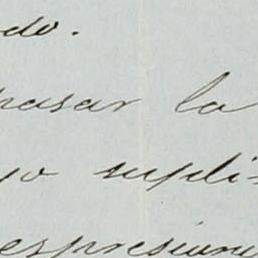 do.
pasar la
yo supli-
expresione